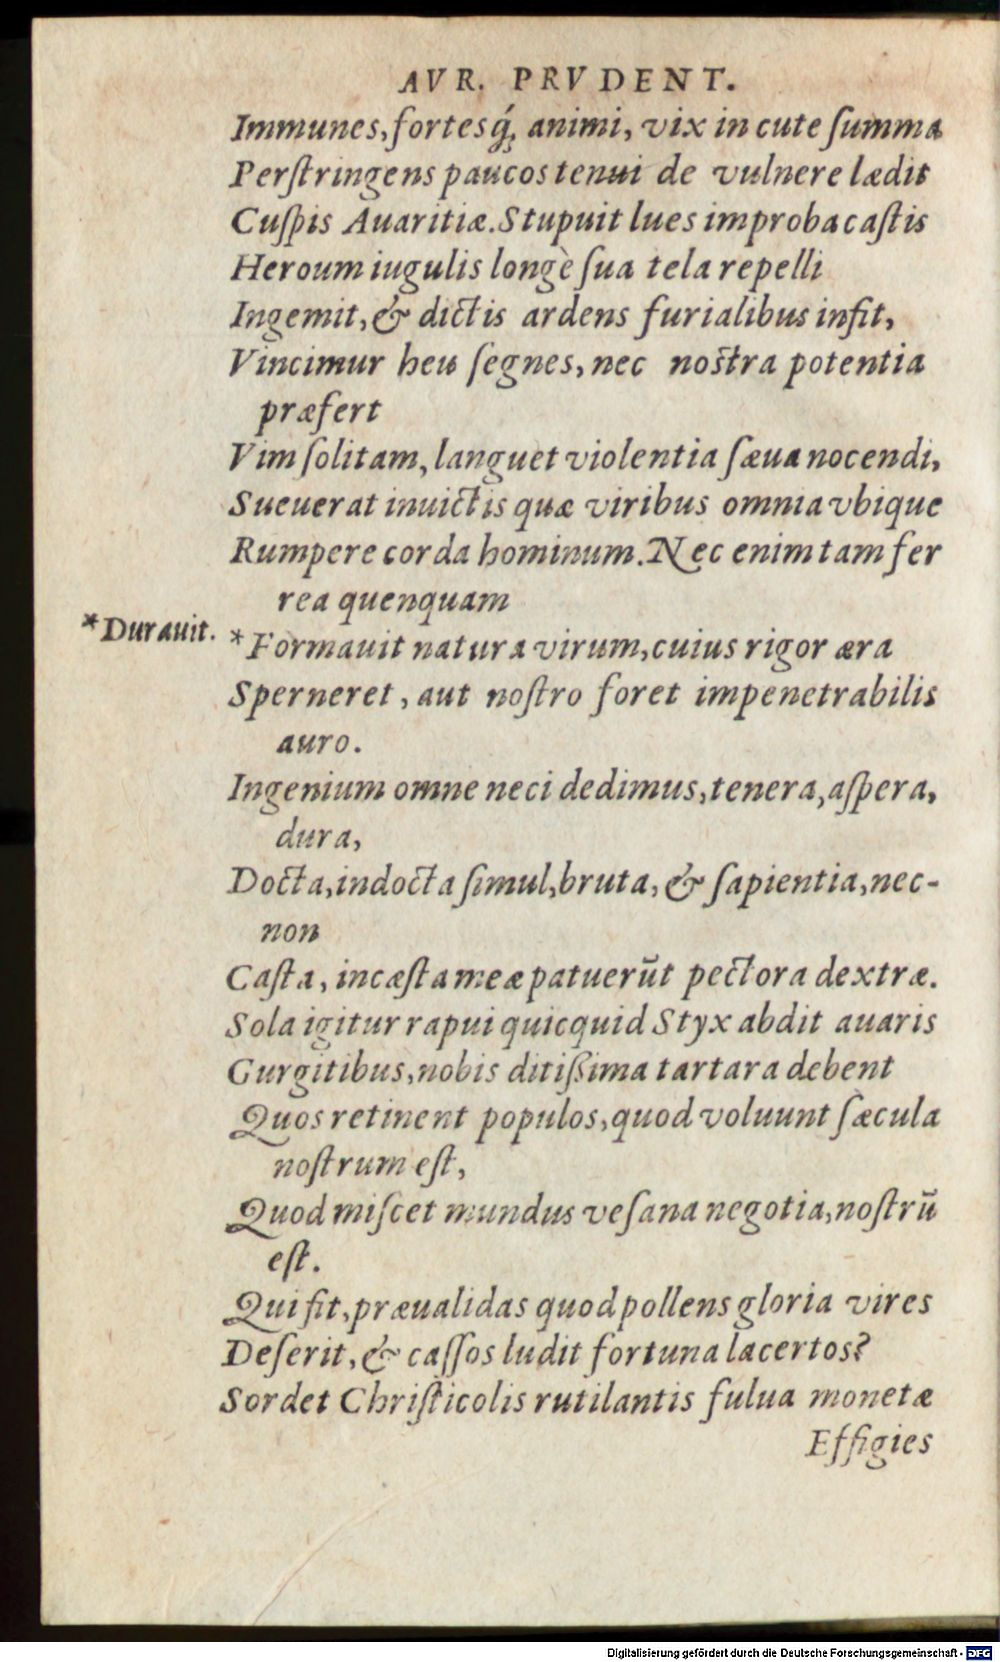 AVR. PRVDENT.
Immunes, fortesq́; animi, vix in cute ſumma
Perſtringens paucos tenui de vulnere lædit
Cuſpis Auaritiæ. Stupuit lues improba caſtis
Heroum iugulis longè ſua tela repelli
Ingemit, & dictis ardens furialibus infit,
Vincimur heu ſegnes, nec noſtra potentia
præfert
Vim ſolitam, languet violentia ſæua nocendi,
Sueuerat inuictis quæ viribus omnia vbique
Rumpere corda hominum. Nec enim tam fer
rea quenquam
*Durauit.
*Formauit natura virum, cuius rigor æra
Sperneret, aut noſtro foret impenetrabilis
auro.
Ingenium omne neci dedimus, tenera, aſpera,
dura,
Docta, indocta ſimul, bruta, & ſapientia, nec-
non
Caſta, incæſta meæ patuerūt pectora dextræ.
Sola igitur rapui quicquid Styx abdit auaris
Gurgitibus, nobis ditißima tartara debent
Quos retinent populos, quod voluunt ſæcula
noſtrum eſt,
Quod miſcet mundus veſana negotia, noſtrū
eſt.
Qui fit, præualidas quod pollens gloria vires
Deſerit, & caſſos ludit fortuna lacertos?
Sordet Chriſticolis rutilantis fulua monetæ
Effigies
Digitalisierung gefördert durch die Deutsche Forschungsgemeinschaft - DFG